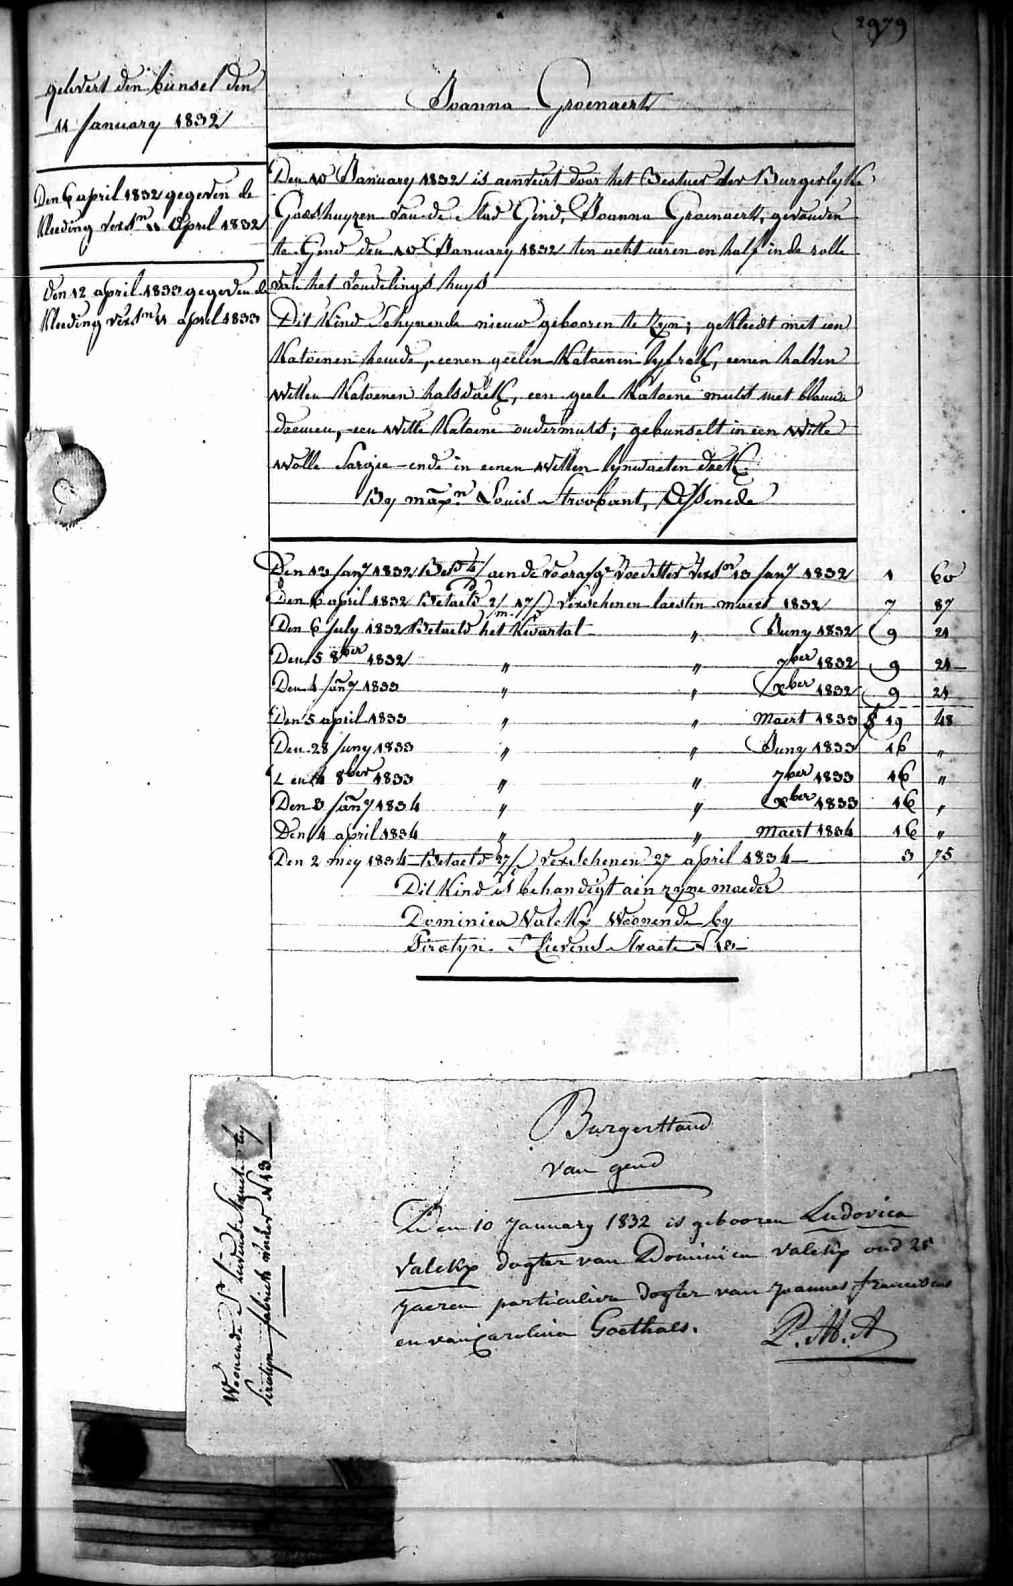 2979
gelevert den bunsel den
11 January 1832
Den 6 april 1832 gegeven de
kleeding versn 11 April 1832
Den 12 april 1833 gegeven de
kleeding versn 11 april 1833
Joanna Groenaert
Den 10 January 1832 is aenveirt door het Bestuer der Burgerlyke
Godshuyzen van de Stad Gend, Joanna Groenaert, gevonden
te Gend den 10 January 1832 ten acht uren en half in de rolle
van het vondelings huys
Dit Kind Schynende nieuw gebooren te Zyn; gekleedt met een
Katoenen hemde, eenen geelen Katoenen lyfrok, eenen halven
witten Katoenen halsdoek, een geele Katoene muts met blauwe
bloemen, een witte Katoene ondermuts; gebunselt in een witte
wolle Sargie ende in eenen witten lynwaeten doek
By Louis Stroobant, Assenede
Den 13 Jany 1832 aen de voorsz Voedster versn 13 Jany 1832 1 60
Den 6 april 1832 Betaeld verschenen laesten maert 1832 7 87
Den 6 July 1832 Betaeld het kwartal " Juny 1832 9 21
Den 5 8ber 1832 " " 7ber 1832 9 21
Den 4 Jany 1833 " " Xber 1832 9 21
Den 5 april 1833 " " Maert 1833 19 48
Den 28 Juny 1833 " " Juny 1833 16 "
Den 4 8ber 1833 " " 7ber 1833 16 "
Den 3 Jany 1834 " " Xber 1833 16 "
Den 4 april 1834 " " Maert 1834 16 "
Den 2 mey 1834 Betaeld 27/ verschenen 27 april 1834 3 75
Dit Kind is behandigt aen zyne moeder
Dominica Valckx Woonende by
Piratyn St Lievens Straete N 13
Burgerstand
van gend
Den 10 January 1832 is gebooren Ludovica
Valckx dogter van Dominica Valckx oud 25
Jaeren particuliere dogter van Joannes franciscus
en van Carolina Goethals.
P.M.A
Woonende St Lievens Straete by
Piratyn fabriek N 13